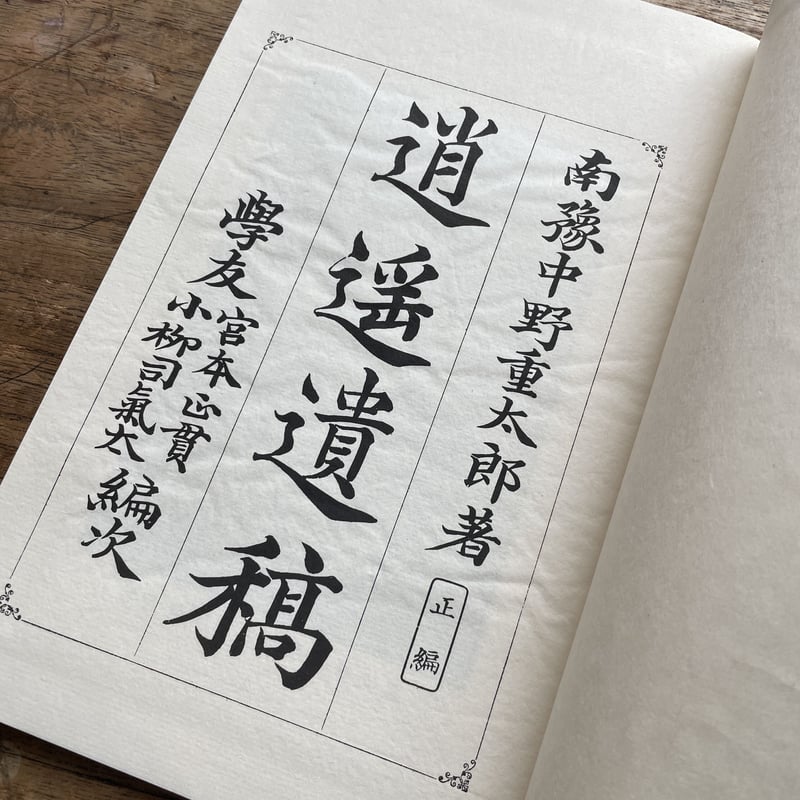 南豫中野重太郎著
正編
逍遥遺稿
學友
宮本正貫
小柳司氣太
編次